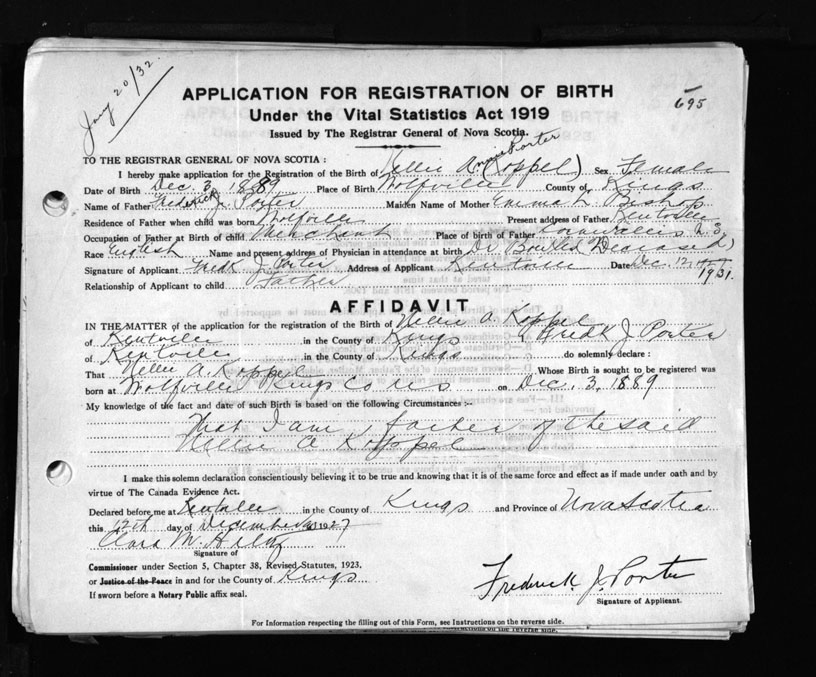 Jany 20/32.
695
APPLICATION FOR REGISTRATION OF BIRTH
Under the Vital Statistics Act 1919
Issued by The Registrar General of Nova Scotia.
Annie Porter
TO THE REGISTRAR GENERAL OF NOVA SCOTIA :
I hereby make application for the Registration of the Birth of Nellie A (Koppel) Sex Female
Date of Birth Dec. 3, 1889 Place of Birth Wolfville County of Kings
Name of Father Frederick J. Porter Maiden Name of Mother Emma L. Bishop
Residence of Father when child was born Wolfville Present address of Father Kentville
Occupation of Father at Birth of child Merchant Place of birth of Father Cornwallis N.S.
Race English Name and present address of Physician in attendance at birth Dr (Deceased)
Signature of Applicant Fredk J. Porter Address of Applicant Kentville Date Dec. 12, 1931.
Relationship of Applicant to child Father
AFFIDAVIT
IN THE MATTER of the application for the registration of the Birth of Nellie A. Koppel
of Kentville in the County of Kings I, Fredk J. Porter
of Kentville in the County of Kings do solemnly declare :
That Nellie A. Koppel Whose Birth is sought to be registered was
born at Wolfville Kings Co N.S on Dec. 3, 1889
My knowledge of the fact and date of such Birth is based on the following Circumstances :-
That I am father of the said
Nellie A Koppel
I make this solemn declaration conscientiously believing it to be true and knowing that it is of the same force and effect as if made under oath and by
virtue of The Canada Evidence Act.
Declared before me at Kentville in the County of Kings and Province of Nova Scotia
this 12th day of December 1927
Clara M.
Signature of
Commissioner under Section 5, Chapter 38, Revised Statutes, 1923.
or Justice of the Peace in and for the County of Kings
If sworn before a Notary Public affix seal.
Frederick J. Porter
Signature of Applicant.
For Information respecting the filling out of this Form, see Instructions on the reverse side.